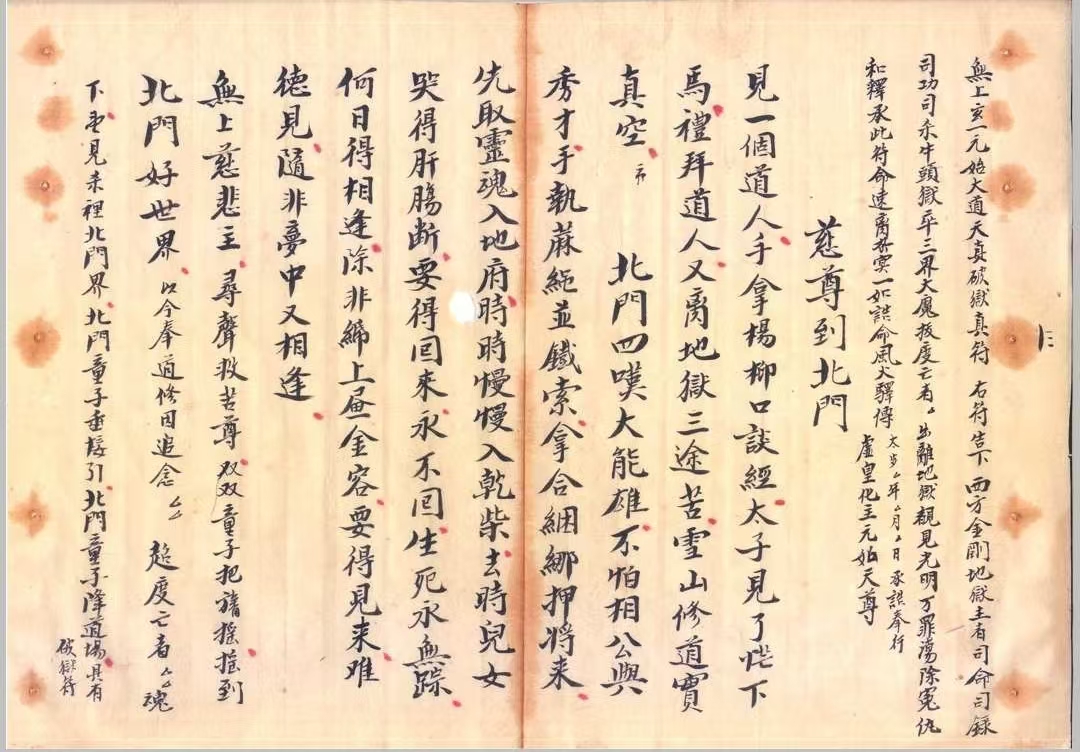 無上玄一元始大道天真破獄真符 右符告下 西方金剛地獄主者司命司錄
司功司杀牛頭獄平三界大魔拔度亡者〻出離地獄覩見光明万罪蕩除冤仇
和釋承此符命速离苦冥一如誥命風火驛傳 太岁〻年〻月〻日 承誥奉行
虛皇化主元始天尊
慈尊到北門
見一個道人手拿楊柳口談經太子見了忙下
馬禮拜道人又离地獄三途苦雪山修道寶
真空
北門四嘆大能雄不怕相公與
秀才手執蔴繩並鐵索拿合綑綁押將来
先取靈魂入地府時時慢慢入乾柴去時兒女
哭得肝腸断要得回來永不回生死永無踪
何日得相逢除非締上昼金容要得見来难
德見隨非夢中又相逢
無上慈悲主尋聲救苦尊双双童子把旛摇摇到
北門好世界 以今奉道修因追念〻〻 超度亡者〻〻魂
下 見来裡北門界北門童子垂接引北門童子降道場具有
破獄符